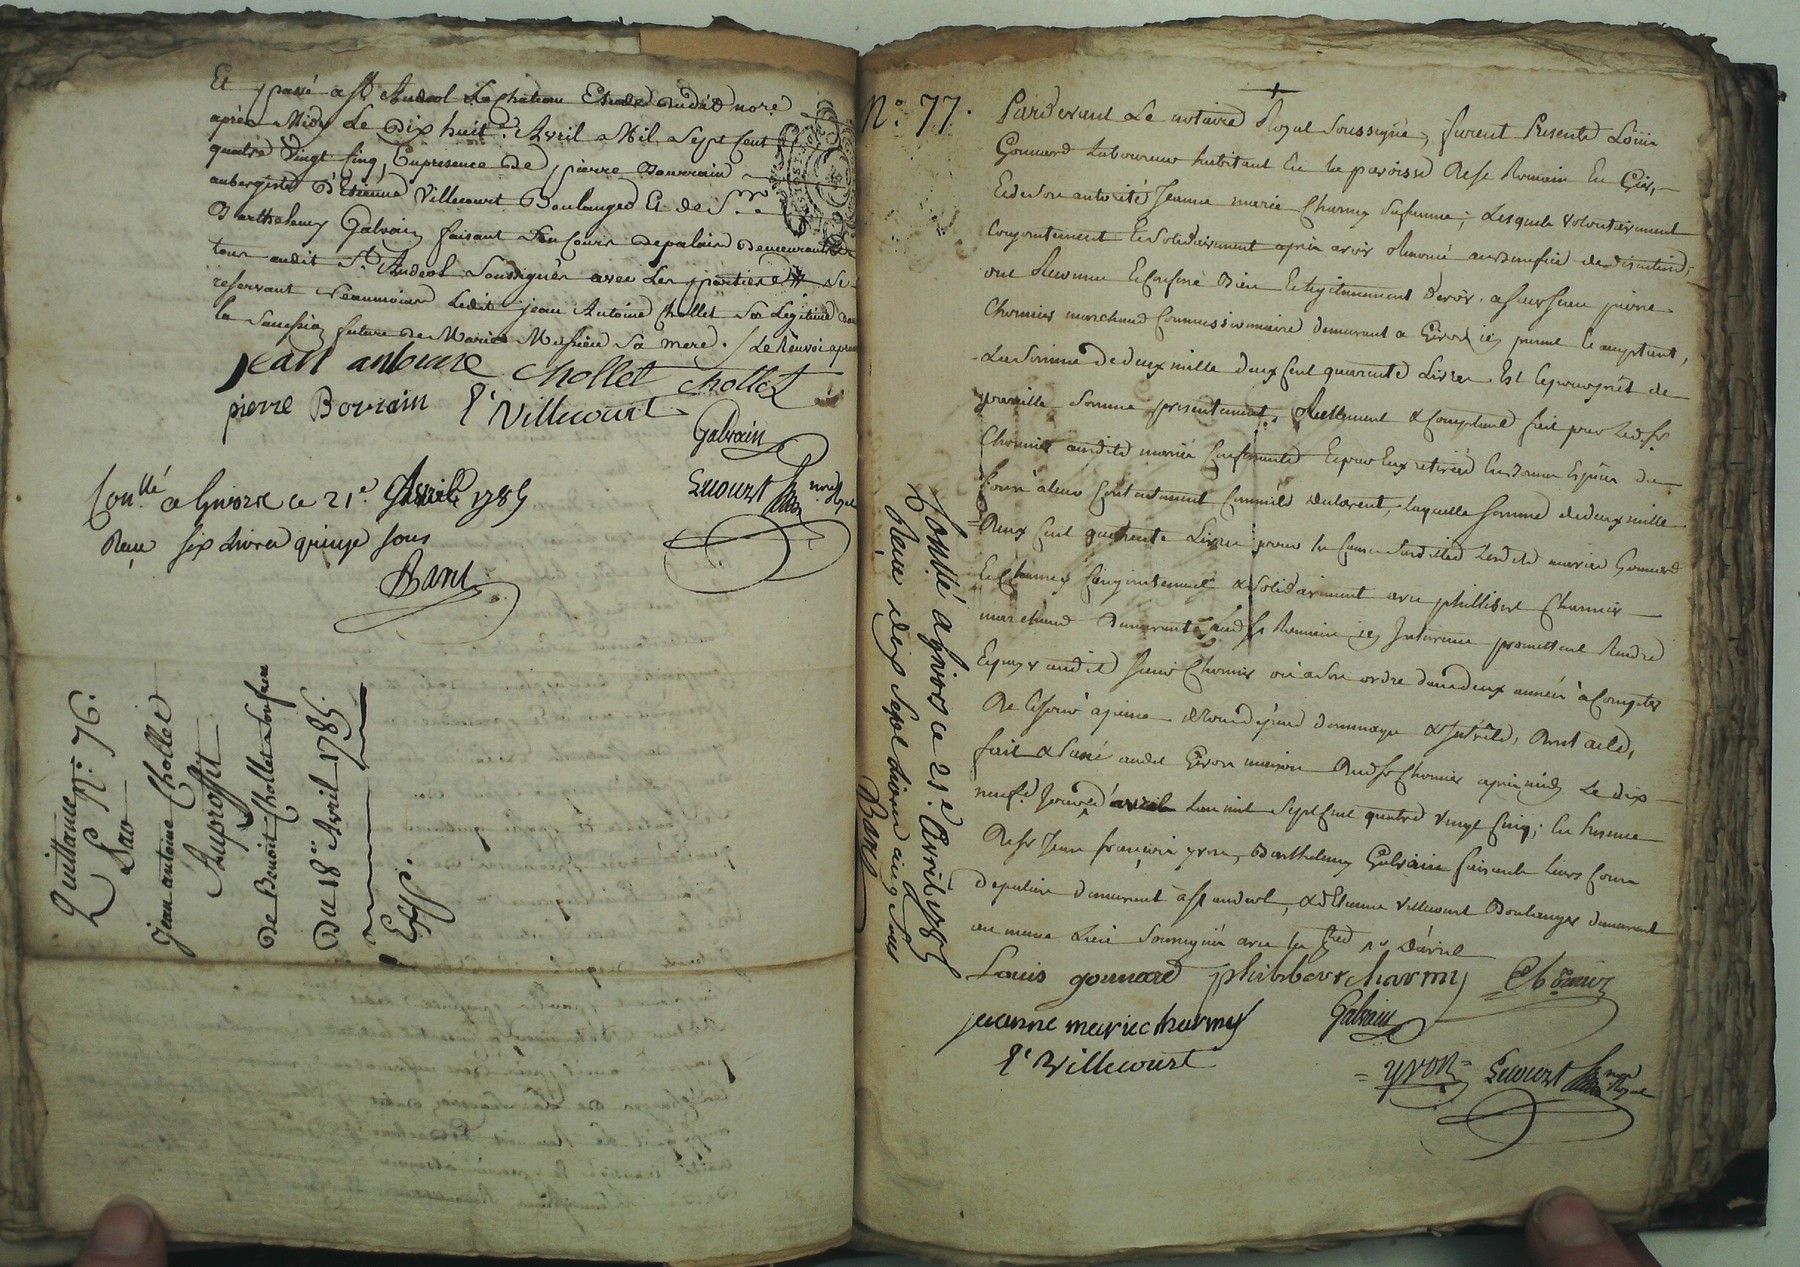 Et passé a St Andeol Le Chateau Etude dudit nore
après Midy Le Dix huit Avril Mil Sept Cent
quatre Vingt Cinq, En presence de pierre Bourrain
aubergiste D'Etienne Villecourt Boulanger Et de Sr
Barthelemy Galvain faisant Son Cours de palais Demeurants
tous audit St Andeol Soussignés avec Les parties Se
reservant Neaumoins Ledit jean Antoine Chollet Sa Légitime
la Sucession future de Marie sa mere. / Le Renvoi
jean antoine chollet chollet
pierre Borrain
E Villecourt
Galvain
Lecourt nore Royal
Conllé a Givors ce 21e Avril 1785
Reçu six Livres quinze sous
Barel
Quittance
N° 76.
Par
jean antoine Chollet
Au proffit
De Benoit Chollet son frere
Du 18e Avril 1785.
Eff.
N° 77.
Pardevant Le notaire Royal Soussigné, furent Presents Louis
Gonnard Laboureur habitant En la paroisse De St Romain En Gier,
Et de Son autorité Jeanne marie Charmy Sa femme; Lesquels volontairement
Conjointement Et Solidairement après avoir Renoncé au Benefice de division,
ont Reconnu Et Confessé Bien Et légitimement devoir a Sieur pierre
Chomier marchand Commissionnaire demeurant a Givors icy present acceptant,
La Somme de deux mille deux Cent quarante Livres Et Ce pour prêt de
pareille Somme presentement, Réellement & Comptant fait par Led. Sr
Chomier audits mariés Et par Eux retirée En Bonne Espèce de
Cours a leur Contentement laquelle Somme de deux mille
Deux Cent quarante Livres Lesdits mariés Gonnard
Et Charmy Conjointement & Solidairement avec phillibert Charmier
marchand Demeurant aud St Romain icy Intervenu promettent Rendre
Et payer audit Sieur Chomier ou a Son ordre dans deux années à Compter
De Ce jour a peine de tous dépens dommages & Intérêts, Dont acte,
fait & passé audit Givors maison Dud Sr Chomier après midy Le dix
neuf Jour d'avril L'an mil Sept Cent quatre Vingt Cinq; En presence
De Sr Jean françois yvon, Barthelemy Galvain faisants leurs Cours
de palais demeurant à St andeol, & d'Etienne Villecourt Boulanger demeurant
au meme Lieu Soussignés avec les
Louis gonnard
phillibert charmy
Chomier
jeanne marie charmy
Galvain
E Villecourt
yvon
Lecourt nore Royal
Conllé a givors ce 21e Avril 1785
Reçu dix Sept Livres cinq Sous
Barel